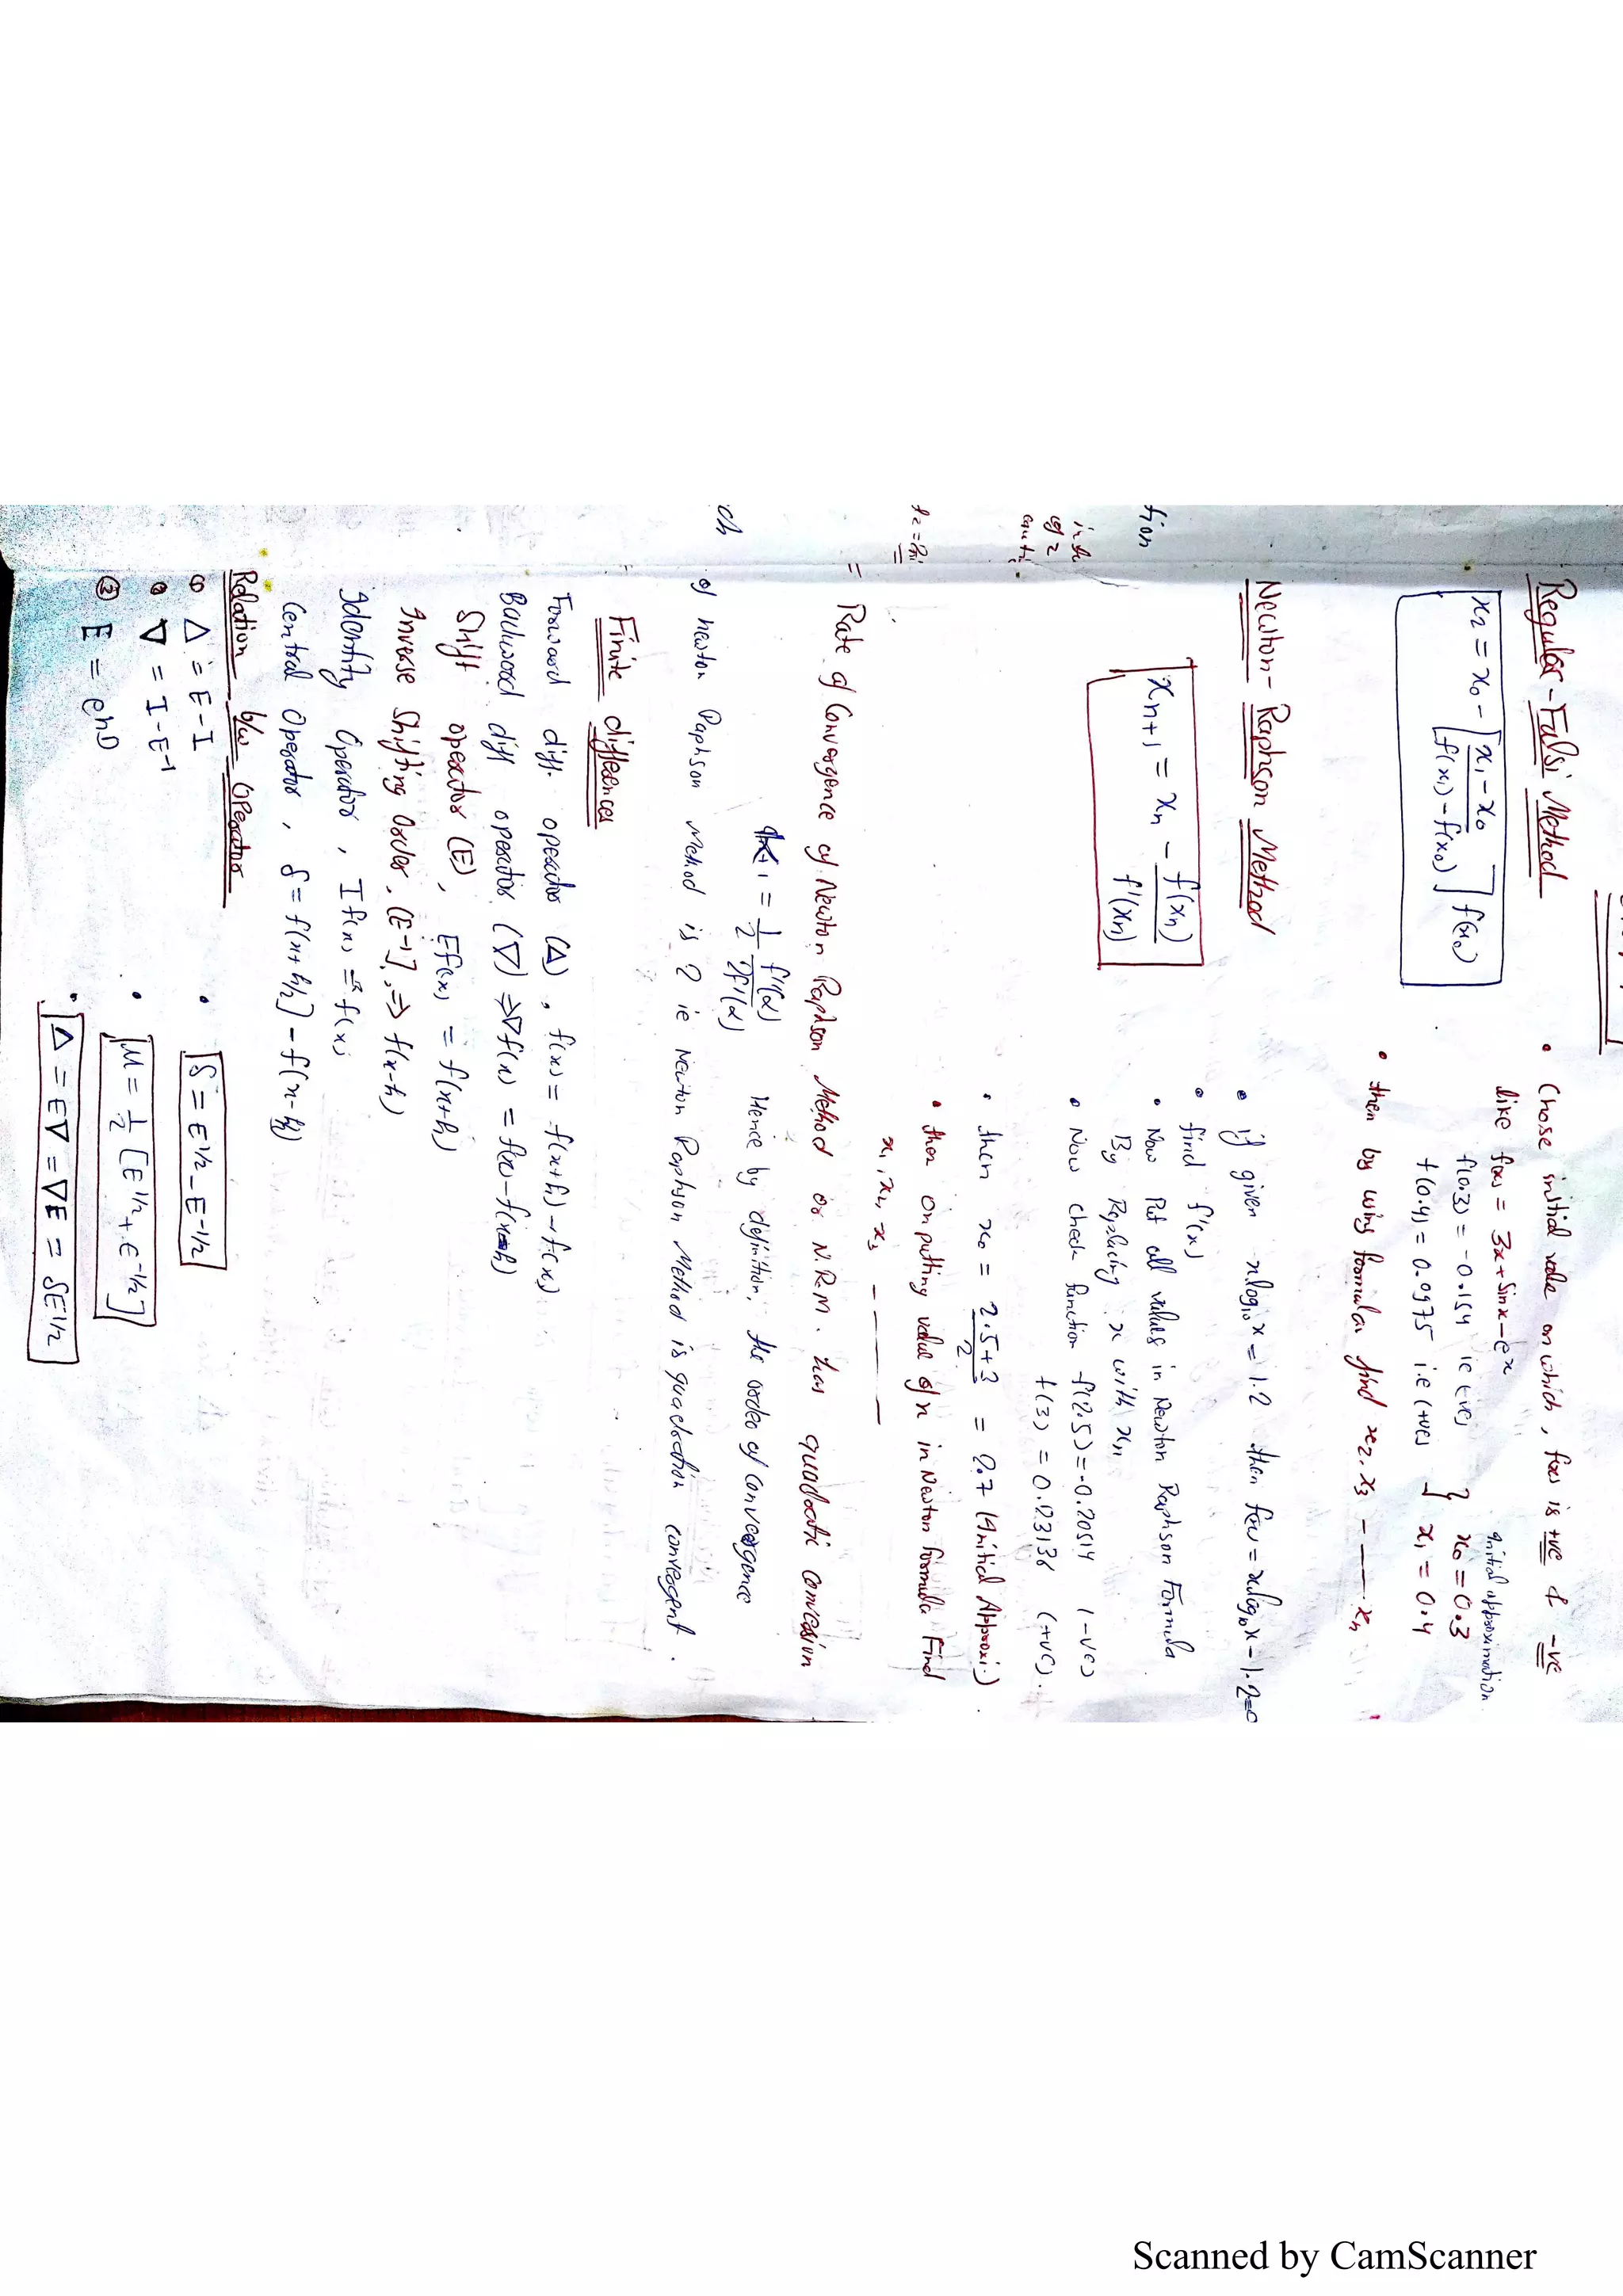 Regular-Falsi Method
x₂ = x₀ - [x₁ - x₀ / f(x₁) - f(x₀)] f(x₀)
• Chose initial value on which, f(x) is +ve & -ve
like f(x) = 3x + Sinx - eˣ
initial approximation
f(0.3) = -0.154 ie (-ve) } x₀ = 0.3
f(0.4) = 0.0975 i.e (+ve) x₁ = 0.4
• then by using formula find x₂, x₃ - - - xₙ
Newton-Raphson Method
xₙ₊₁ = xₙ - f(xₙ) / f'(xₙ)
• if given xlog₁₀x = 1.2 then f(x) = xlog₁₀x - 1.2 = 0
• find f'(x)
• Now Put all values in Newton Raphson Formula
By Replacing x with xₙ
• Now check function f(2.5) = -0.20514 (-ve)
f(3) = 0.23136 (+ve).
• then x₀ = 2.5+3 / 2 = 2.7 (Initial Approxi.)
• then on putting value of x in Newton formula Find
x₁, x₂, x₃ - - - -
Rate of Convergence of Newton Raphson Method or N.R.M. has quadratic
= 1/2 f''(α) / 2f'(α) Hence by definition, the order of convergence
of newton Raphson Method is 2 ie Newton Raphson Method is quadratic convergent.
Finite differences
Forward diff. operator (Δ), f(x) = f(x+h) - f(x)
Backward diff operator (∇) ⇒ ∇f(x) = f(x) - f(x-h)
Shift operator (E), Ef(x) = f(x+h)
Inverse Shifting Order, (E⁻¹], ⇒ f(x-h)
Identity Operator, If(x) = f(x)
Central Operator, δ = f(x+h/2] - f(x-h/2)
Relation b/w Operator
① Δ = E - I
• ∇ = I - E⁻¹
③ E = eʰᴰ
• δ = E^1/2 - E^-1/2
• μ = 1/2 [E^1/2 + E^-1/2]
• Δ = E∇ = ∇E = δE^1/2
tion
ch
Scanned by CamScanner